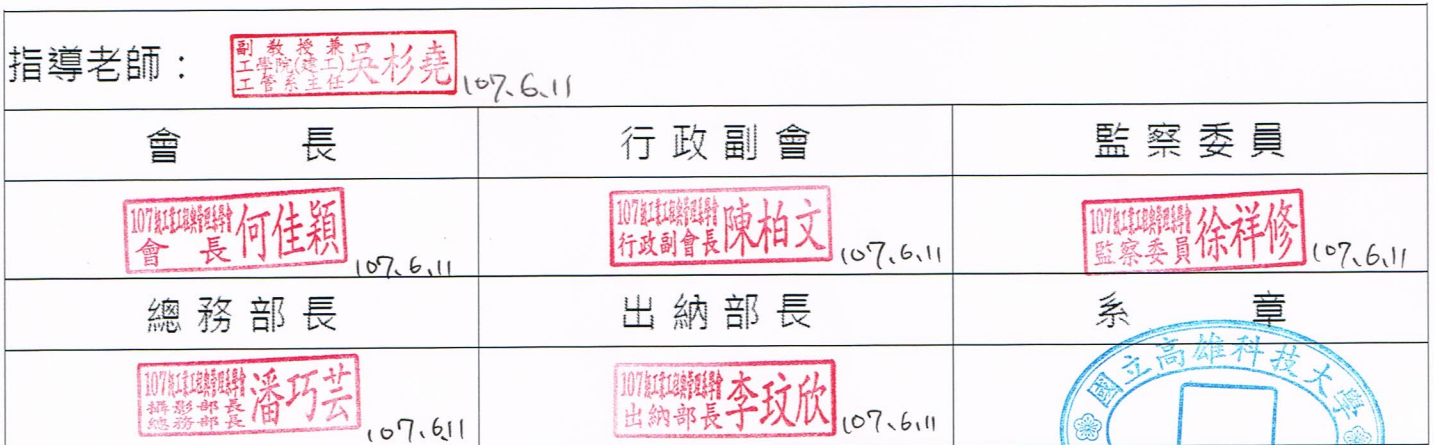 指導老師：
副教授兼
工學院(建工)
工管系主任
吳杉堯
107.6.11
會長 行政副會 監察委員
107級工業工程與管理系學會
會長 何佳穎
107.6.11
107級工業工程與管理系學會
行政副會長 陳柏文
107.6.11
107級工業工程與管理系學會
監察委員 徐祥修
107.6.11
總務部長 出納部長 系章
107級工業工程與管理系學會
攝影部長
總務部長
潘巧芸
107.6.11
107級工業工程與管理系學會
出納部長 李玟欣
107.6.11
國立高雄科技大學